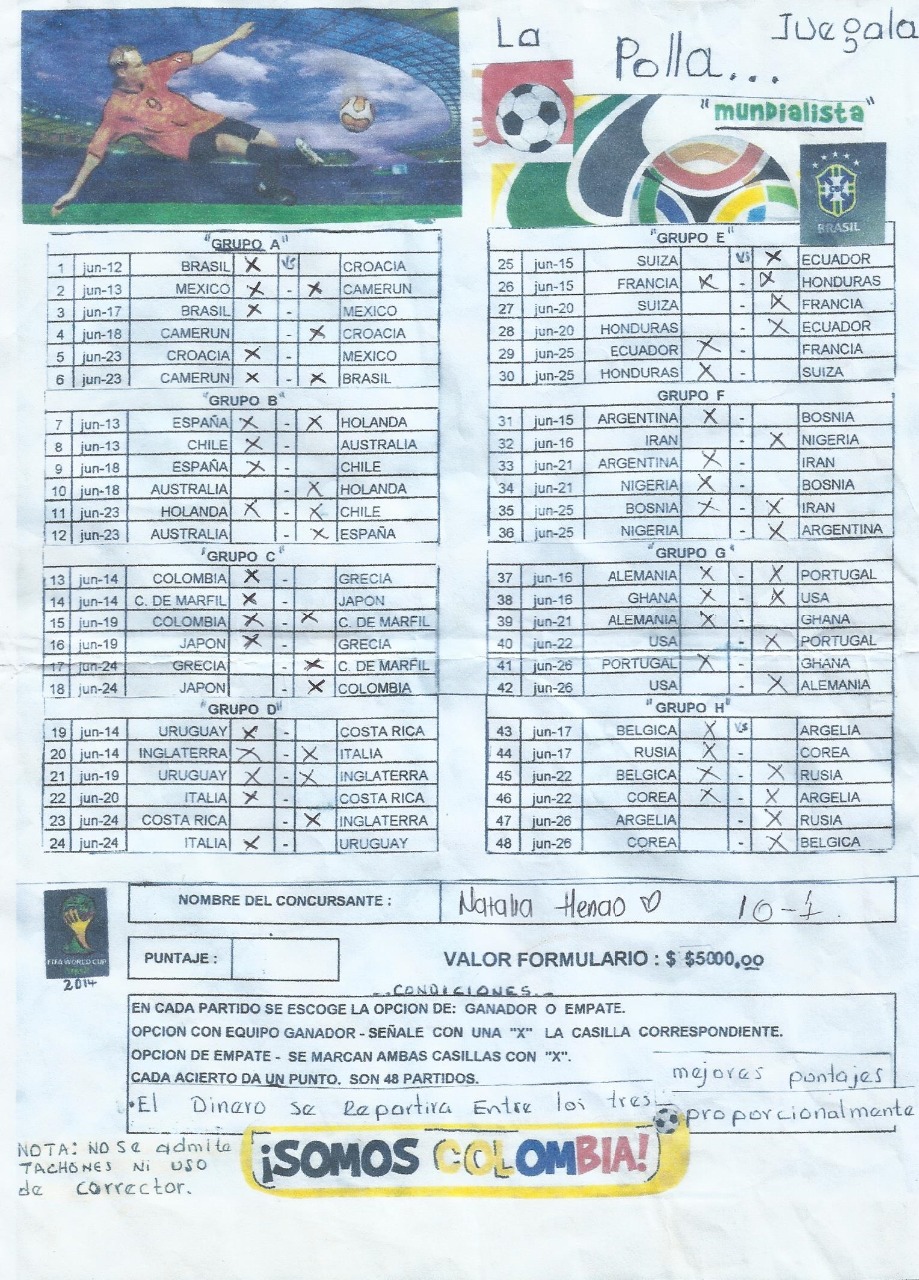 La Polla... Juegala
"mundialista"
CBF
BRASIL
"GRUPO A"
1 jun-12 BRASIL X VS CROACIA
2 jun-13 MEXICO X - X CAMERUN
3 jun-17 BRASIL X - MEXICO
4 jun-18 CAMERUN - X CROACIA
5 jun-23 CROACIA X - MEXICO
6 jun-23 CAMERUN X - X BRASIL
"GRUPO B"
7 jun-13 ESPAÑA X - X HOLANDA
8 jun-13 CHILE X - AUSTRALIA
9 jun-18 ESPAÑA X - CHILE
10 jun-18 AUSTRALIA - X HOLANDA
11 jun-23 HOLANDA X - X CHILE
12 jun-23 AUSTRALIA - X ESPAÑA
"GRUPO C"
13 jun-14 COLOMBIA X - GRECIA
14 jun-14 C. DE MARFIL X - JAPON
15 jun-19 COLOMBIA X - X C. DE MARFIL
16 jun-19 JAPON X - GRECIA
17 jun-24 GRECIA - X C. DE MARFIL
18 jun-24 JAPON - X COLOMBIA
"GRUPO D"
19 jun-14 URUGUAY X - COSTA RICA
20 jun-14 INGLATERRA X - X ITALIA
21 jun-19 URUGUAY X - X INGLATERRA
22 jun-20 ITALIA X - COSTA RICA
23 jun-24 COSTA RICA - X INGLATERRA
24 jun-24 ITALIA X - URUGUAY
"GRUPO E"
25 jun-15 SUIZA VS X ECUADOR
26 jun-15 FRANCIA X - X HONDURAS
27 jun-20 SUIZA - X FRANCIA
28 jun-20 HONDURAS - X ECUADOR
29 jun-25 ECUADOR X - FRANCIA
30 jun-25 HONDURAS X - SUIZA
GRUPO F
31 jun-15 ARGENTINA X - BOSNIA
32 jun-16 IRAN - X NIGERIA
33 jun-21 ARGENTINA X - IRAN
34 jun-21 NIGERIA X - BOSNIA
35 jun-25 BOSNIA X - X IRAN
36 jun-25 NIGERIA - X ARGENTINA
"GRUPO G"
37 jun-16 ALEMANIA X - X PORTUGAL
38 jun-16 GHANA X - X USA
39 jun-21 ALEMANIA X - GHANA
40 jun-22 USA - X PORTUGAL
41 jun-26 PORTUGAL X - GHANA
42 jun-26 USA - X ALEMANIA
"GRUPO H"
43 jun-17 BELGICA X VS ARGELIA
44 jun-17 RUSIA X - COREA
45 jun-22 BELGICA X - X RUSIA
46 jun-22 COREA X - X ARGELIA
47 jun-26 ARGELIA - X RUSIA
48 jun-26 COREA - X BELGICA
FIFA WORLD CUP
2014
NOMBRE DEL CONCURSANTE : Natalia Henao ♡ 10-1
PUNTAJE : VALOR FORMULARIO : $ $5000,00
CONDICIONES
EN CADA PARTIDO SE ESCOGE LA OPCION DE: GANADOR O EMPATE.
OPCION CON EQUIPO GANADOR - SEÑALE CON UNA "X" LA CASILLA CORRESPONDIENTE.
OPCION DE EMPATE - SE MARCAN AMBAS CASILLAS CON "X".
CADA ACIERTO DA UN PUNTO. SON 48 PARTIDOS.
•El Dinero se Repartira Entre los tres mejores puntajes
proporcionalmente
NOTA: NO Se admite
TACHONES NI USO
de corrector.
¡SOMOS COLOMBIA!